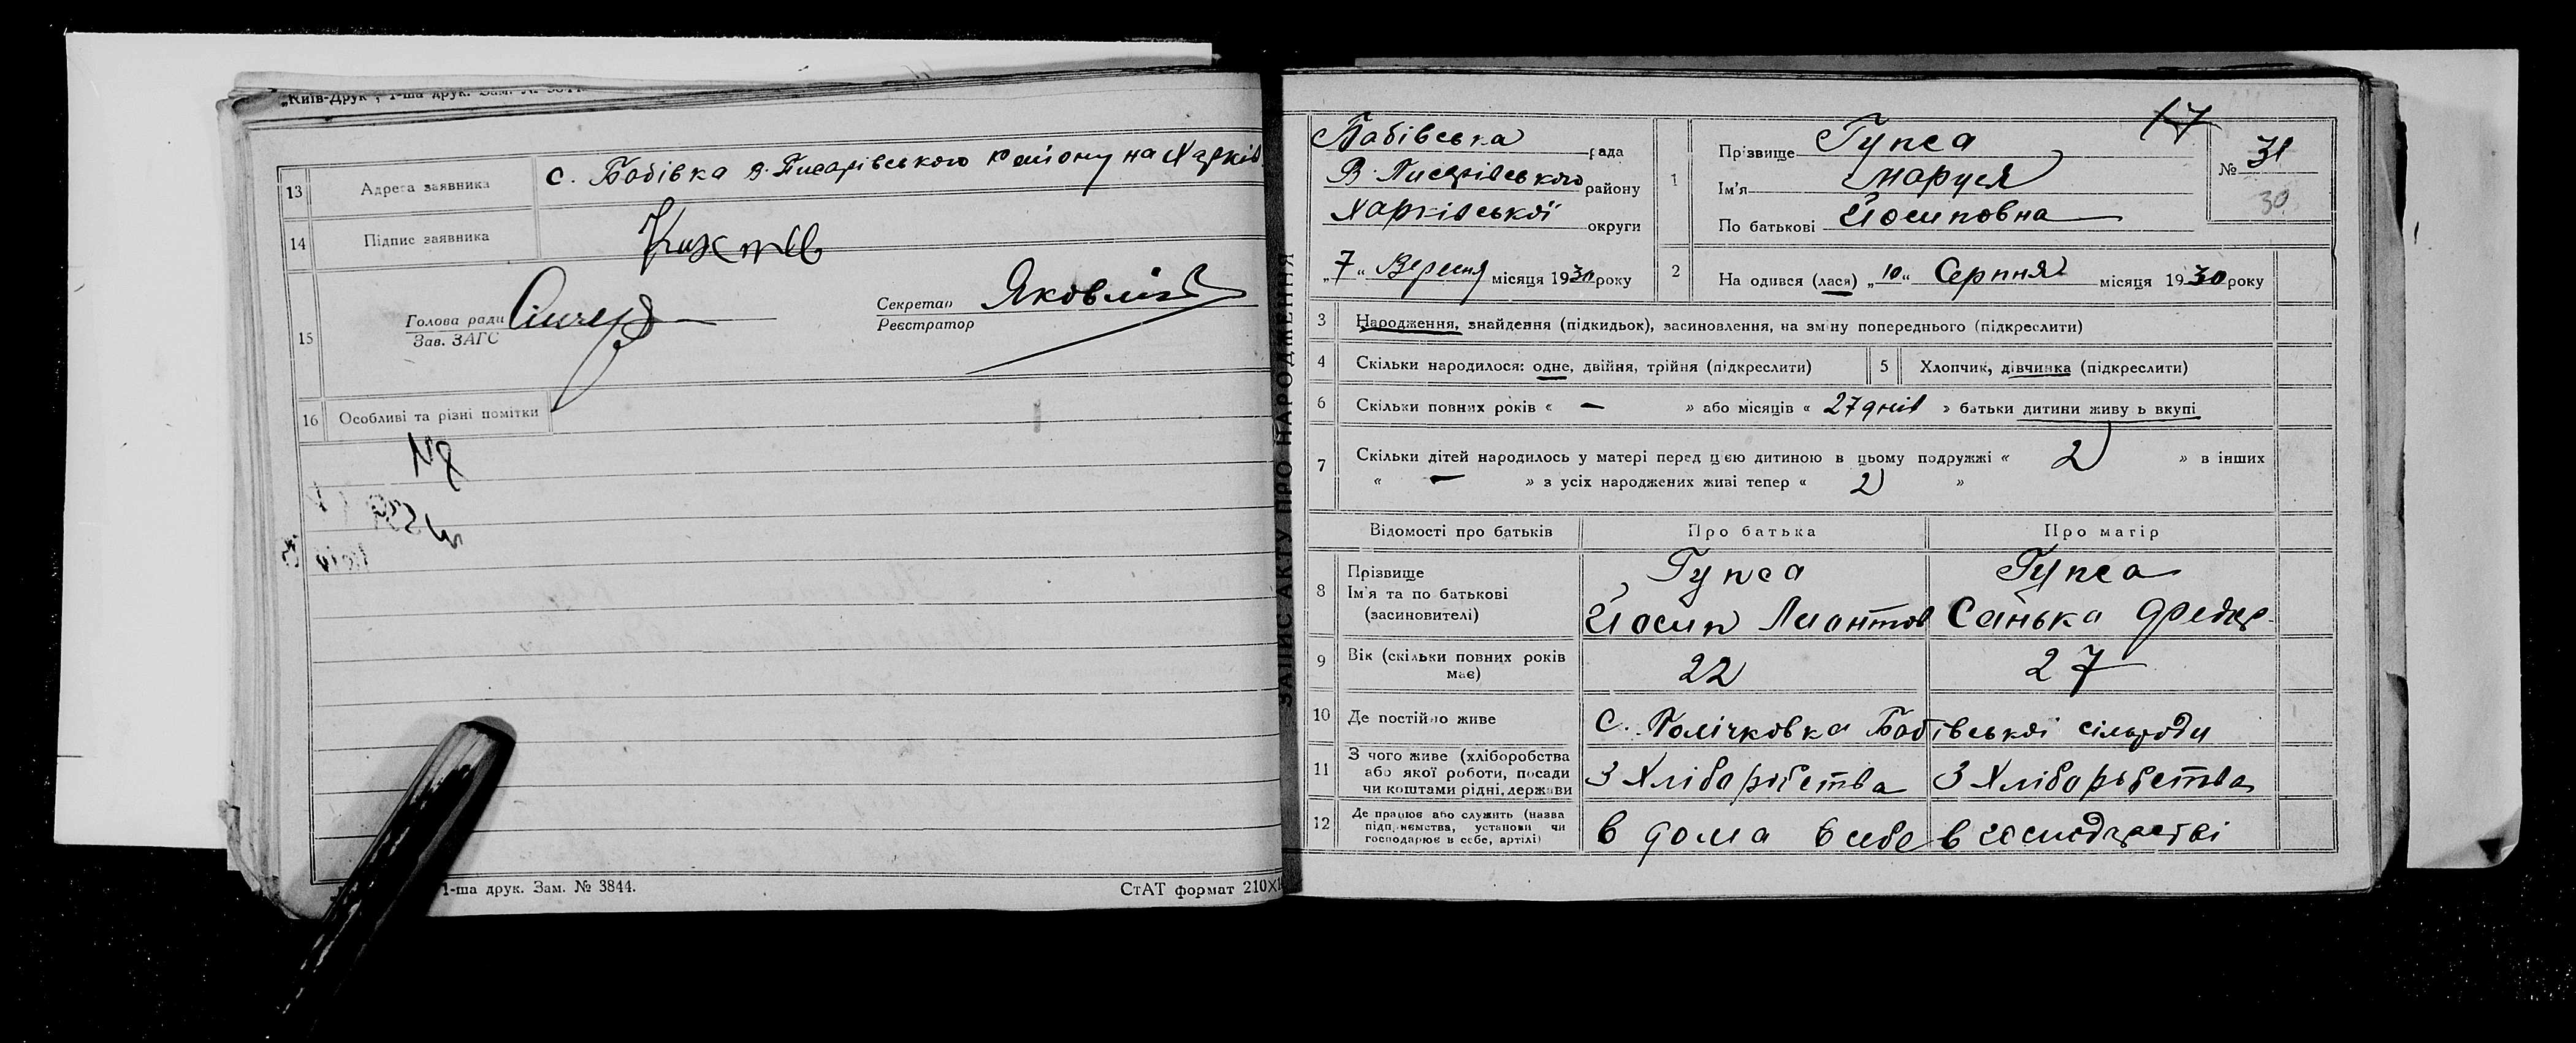 „Київ-Друк", 1-ша друк. Зам. № 3844.
13 Адреса заявника с. Бабівка В. Писарівського району на Харків
14 Підпис заявника
15 Голова ради
Зав. ЗАГС
Секретар Яковлів
Реєстратор
16 Особливі та різні помітки
1-ша друк. Зам. № 3844.
СтАТ формат 210×1
ЗАПИС АКТУ ПРО НАРОДЖЕННЯ
Бабівська рада
В. Писарівського району
Харківської округи
„7" Вересня місяця 1930 року
17
1 Прізвище Гупса
Ім'я Маруся
По батькові Йосиповна
№ 31
30
2 На одився (лася) „10" Серпня місяця 1930 року
3 Народження, знайдення (підкидьок), засиновлення, на зміну попереднього (підкреслити)
4 Скільки народилося: одне, двійня, трійня (підкреслити)
5 Хлопчик, дівчинка (підкреслити)
6 Скільки повних років « – » або місяців « 27 днів » батьки дитини живу ь вкупі
7 Скільки дітей народилось у матері перед цією дитиною в цьому подружжі « 2 » в інших
« – » з усіх народжених живі тепер « 2 »
Відомості про батьків Про батька Про матір
8 Прізвище
Ім'я та по батькові
(засновителі)
Гупса Гупса
Йосип Санька
9 Вік (скільки повних років
має)
22 27
10 Де постійно живе с. Полічковка Бабівської сільради
11 З чого живе (хліборобства
або якої роботи, посади
чи коштами рідні, держави
З Хліборобства З Хліборобства
12 Де працює або служить (назва
підприємства, установи чи
господарює в себе, артілі)
в дома в себе в господарстві